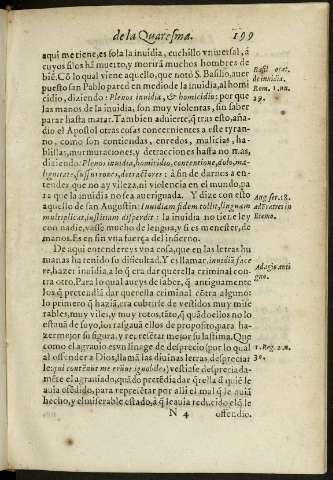 de la Quaresma. 199
aqui me tiene, es sola la inuidia, cuchillo vniuersal, á
cuyos filos hã muerto, y morirá muchos hombres de
biē. Cõ lo qual viene aquello, que notó S. Basilio, auer
puesto san Pablo pared en medio de la inuidia, al homi
cidio, diziendo: Plenos inuidia, & homicidio: por que
las manos de la inuidia, son muy violentas, sin saber
parar hasta matar. Tambien aduierte, q̃ tras esto, aña-
dio el Apostol otras cosas concernientes a este tyran-
no, como son contiendas, enredos, malicias, ha-
blillas, murmuraciones, y detracciones hasta no mas,
diziendo: Plenos inuidia, homicidio, contentione, dolo, ma-
lignitate, susurrones, detractores: á fin de darnos a en-
tender que no ay vileza, ni violencia en el mundo, pa
ra que la inuidia no sea auerignada. Y dize con esto
aquello de san Augustin: Inuidiam fidem tollit, linguam
multiplicat, iustitiam disperdit: la inuidia no tiene ley
con nadie, vasse mucho de lengua, y si es menester, de
manos. Es en fin vna fuerça del infierno.
De aqui entendereys vna cosa, que en las letras hu
manas ha tenido su dificultad. Y es llamar, inuidia face
re, hazer inuidia, a lo q̃ era dar querella criminal con-
tra otro. Para lo qual aueys de saber, q̃ antiguamente
los, q̃ pretendiã dar querella criminal cõtra alguno:
lo primero q̃ haziã, era cubrirse de vestidos muy mise
rables, muy viles, y muy rotos, tãto, q̃ quãdo ellos no lo
estauã de suyo, los rasgauã ellos de proposito, para ha-
zer mejor su figura, y represētar mejor su lastima. Que
como el agrauio es vn linage de desprecio (por lo qual
al ofender a Dios, llamã las diuinas letras, despreciar
le: qui contēnūt me erūnt ignobiles) vestiase desprecia da-
mēte el agrauiado, quãdo pretēdia dar q̃rella d̃ quiē le
auia ofēdido, para represētar por alli el mal q̃ le auia
hecho, y el miserable estado, á q̃ le auia reducido el q̃ le
N 4 offendio.
Basil. orat.
de inuidia.
Rom. 1. nu.
29.
Aug ser. 18.
ad Fratres in
Eremo.
Adagio anti
guo.
1. Reg. 2. n.
30.